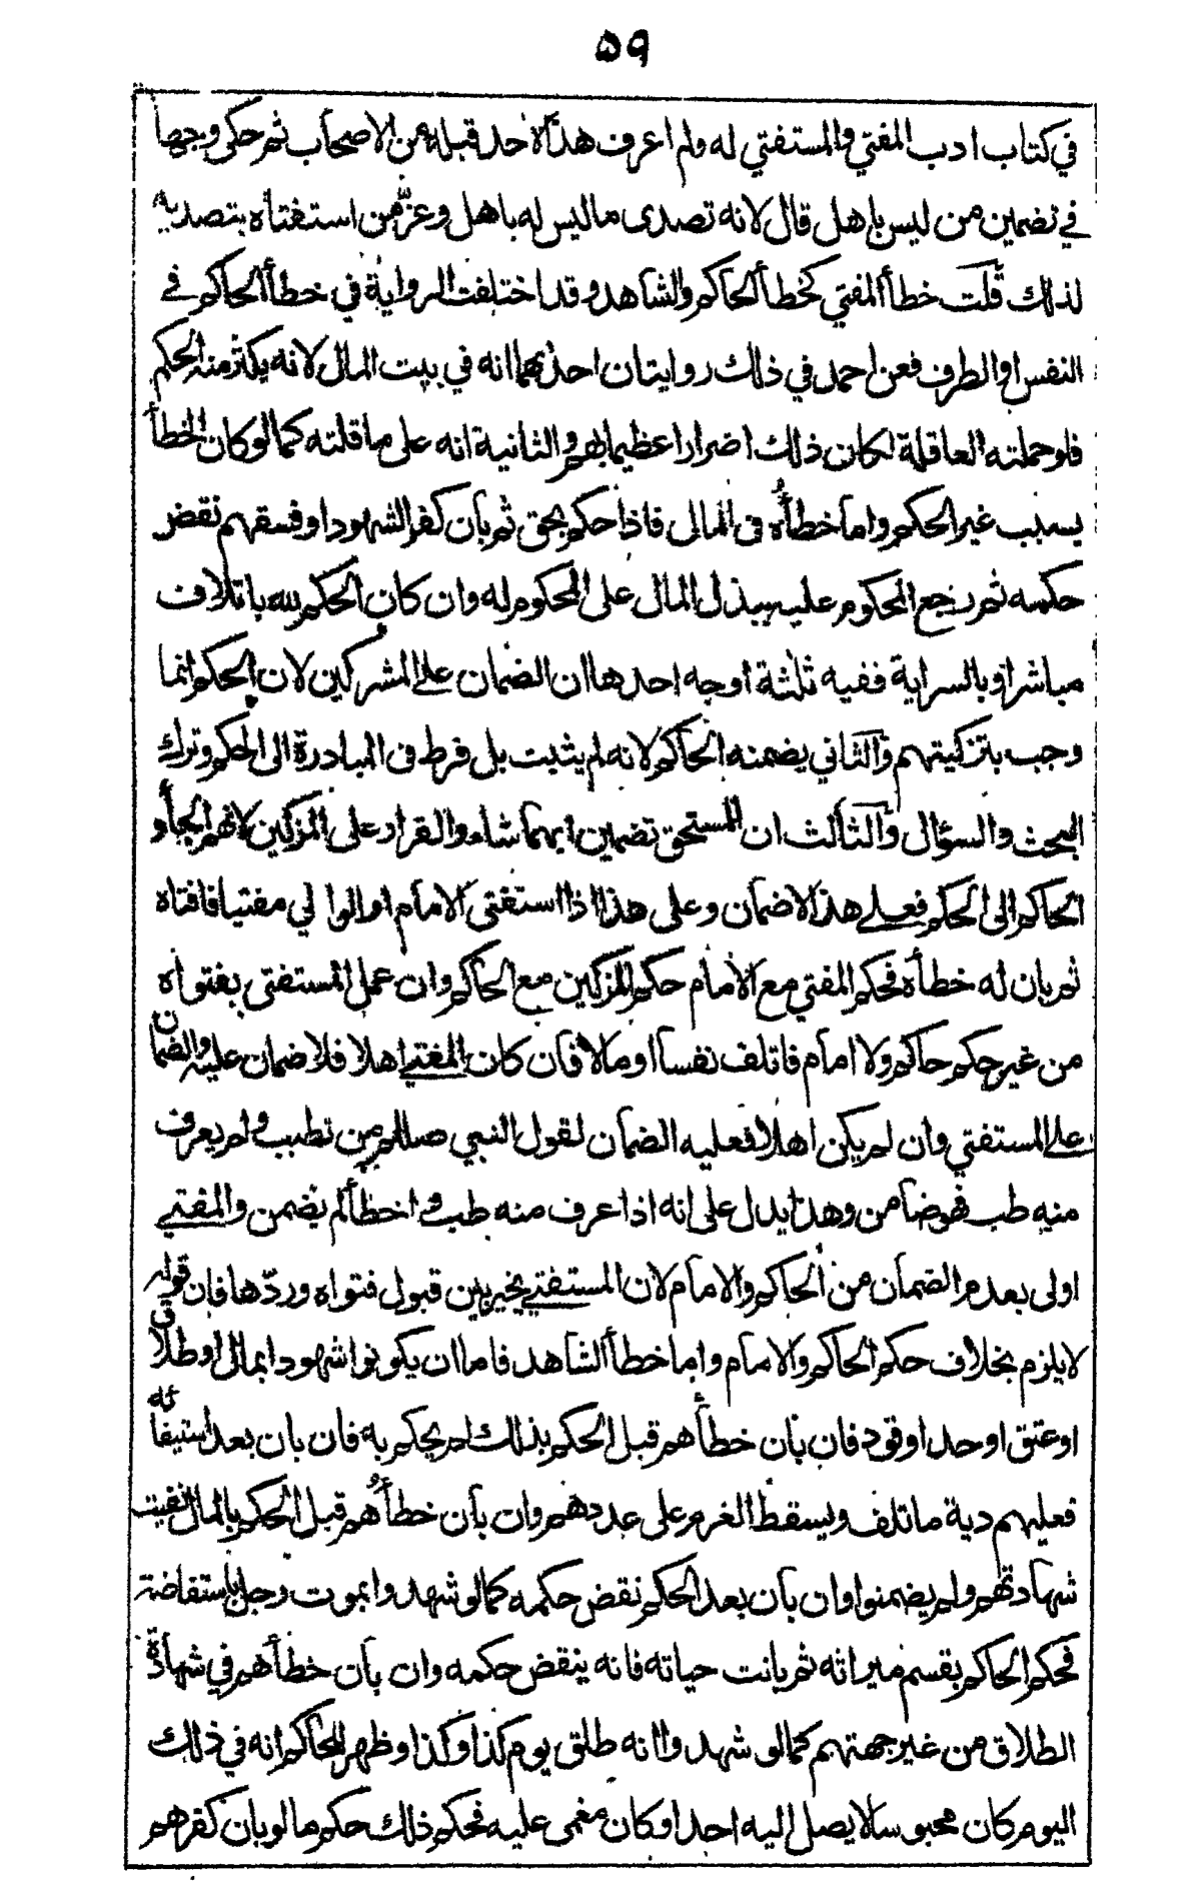 ٥٩
في كتاب ادب المفتي والمستفتي له ولم اعرف هذا لاحد قبله من الاصحاب ثم حكى وجها
في تضمين من ليس باهل قال لانه تصدى ما ليس له باهل وغرّ من استفتاه بتصديه
لذلك قلت خطأ المفتي كخطأ الحاكم والشاهد وقد اختلفت الرواية في خطأ الحاكم في
النفس او الطرف فعن احمد في ذلك روايتان احدهما انه في بيت المال لانه يكثر منه الحكم
فلو حملته العاقلة لكان ذلك اضرارا عظيما بهم والثانية انه على عاقلته كما لو كان الخطأ
بسبب غير الحكم واما خطأه في المال فاذا حكم بحق ثم بان كفر الشهود او فسقهم نقض
حكمه ثم رجع المحكوم عليه ببذل المال على المحكوم له وان كان الحكم لله باتلاف
مباشر او بالسراية ففيه ثلثة اوجه احدها ان الضمان على المشركين لان الحكم انما
وجب بتزكيتهم والثاني يضمنه الحاكم لانه لم يثبت بل فرط في المبادرة الى الحكم وترك
البحث والسؤال والثالث ان للمستحق تضمين ايهما شاء والقرار على المزكين لانهم الجأو
الحاكم الى الحكم فعلى هذا لاضمان وعلى هذا اذا استفتى الامام او الوالي مفتيا فافتاه
ثم بان له خطأه فحكم المفتي مع الامام حكم المزكين مع الحاكم وان عمل المستفتي بفتواه
من غير حكم حاكم ولا امام فاتلف نفسا او مالا فان كان المفتي اهلا فلا ضمان عليه والضمان
على المستفتي وان لم يكن اهلا فعليه الضمان لقول النبي صللم من تطبب ولم يعرف
منه طب فهو ضامن وهذا يدل على انه اذا عرف منه طب واخطأ لم يضمن والمفتي
اولى بعدم الضمان من الحاكم والامام لان المستفتي يخير بين قبول فتواه وردّها فان قوله
لا يلزم بخلاف حكم الحاكم والامام واما خطأ الشاهد فاما ان يكونوا شهودا بمال او طلاق
او عتق او حد او قود فان بان خطأهم قبل الحكم بذلك لم يحكم به فان بان بعد استيفائه
فعليهم دية ما تلف ويسقط الغرم على عددهم وان بان خطأهم قبل الحكم بالمال نفيت
شهادتهم ولم يضمنوا وان بان بعد الحكم نقض حكمه كما لو شهدوا بموت رجل باستفاضة
فحكم الحاكم بقسم ميراثه ثم بانت حياته فانه ينقض حكمه وان بان خطأهم في شهادة
الطلاق من غير جهتهم كما لو شهدوا انه طلق يوم كذا وكذا وظهر للحاكم انه في ذلك
اليوم كان محبوسا لا يصل اليه احد او كان مغمى عليه فحكم ذلك حكم ما لو بان كفرهم